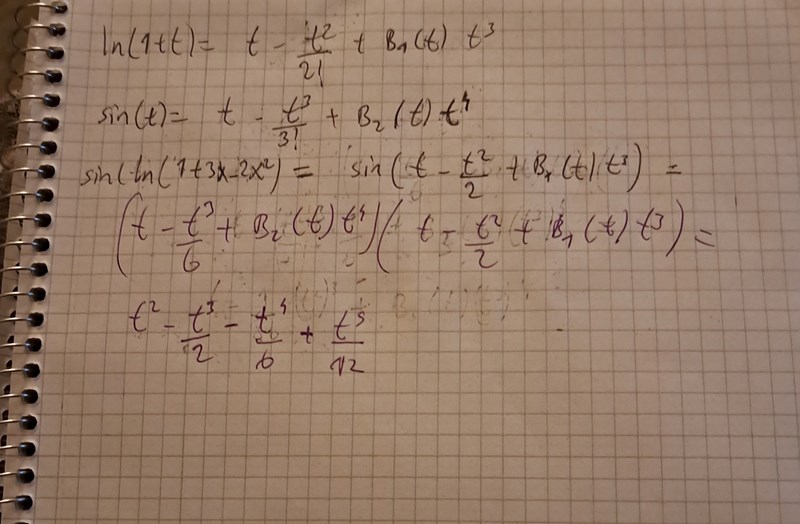 ln(1+t) = t - t²/2! + B₁(t) t³
sin(t) = t - t³/3! + B₂(t) t⁴
sin(ln(1+3x-2x²) = sin(t - t²/2 + B₁(t) t³) =
(t - t³/6 + B₂(t) t⁴)(t - t²/2 + B₁(t) t³) =
t² - t³/2 - t⁴/6 + t⁵/12